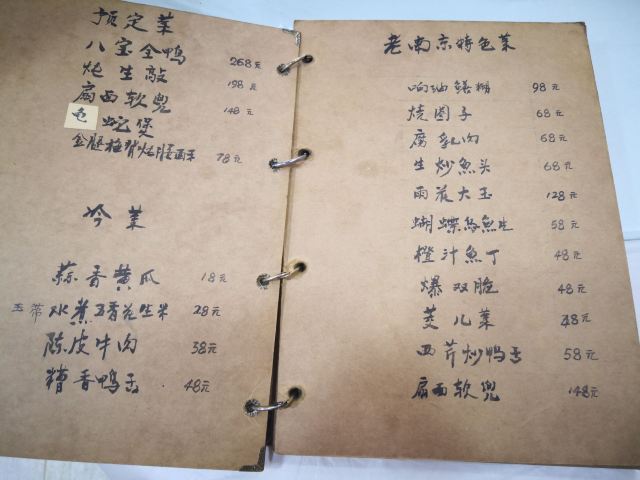 预定菜
八宝全鸭 268元
炖生敲 198元
软兜 148元
龟 蛇煲
金腿 78元
冷菜
蒜香黄瓜 18元
水煮五香花生米 28元
陈皮牛肉 38元
糟香鸭舌 48元
老南京特色菜
响油鳝糊 98元
烧圈子 68元
腐乳肉 68元
生炒魚头 68元
雨花大玉 128元
蝴蝶乌魚 58元
橙汁魚丁 48元
爆双脆 48元
茭儿菜 48元
西芹炒鸭舌 58元
软兜 148元